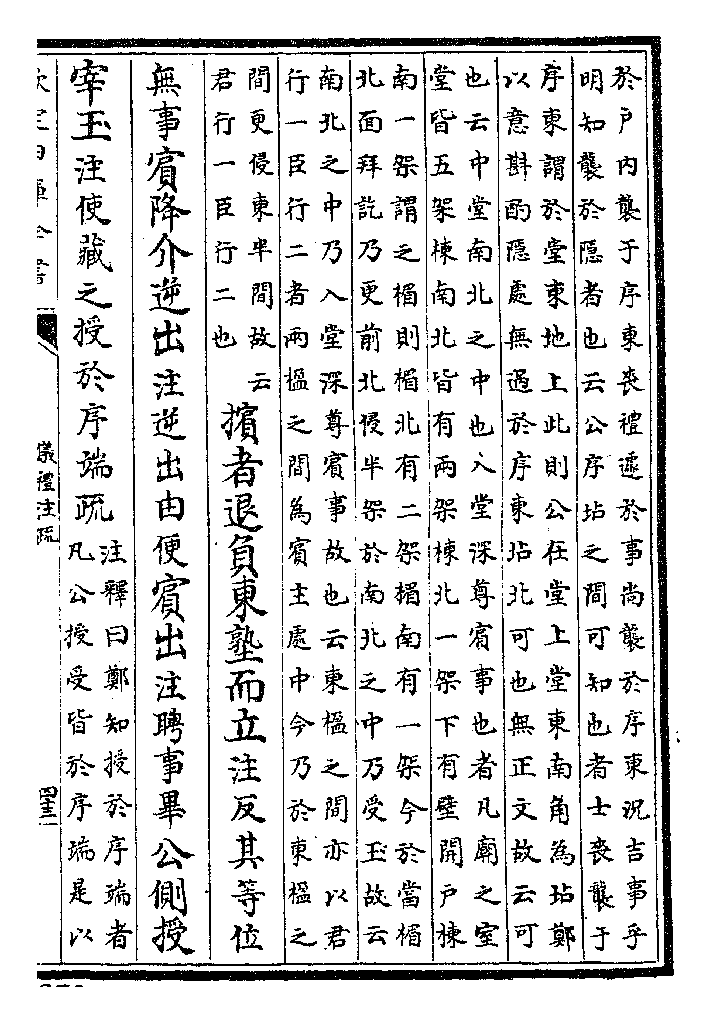 於户内襲于序東喪禮遽於事尚襲於序東況吉事乎
明知襲於隱者也云公序坫之間可知也者士喪襲于
序東謂於堂東地上此則公在堂上堂東南角為坫鄭
以意斟酌隱處無過於序東坫北可也無正文故云可
也云中堂南北之中也入堂深尊賓事也者凡廟之室
堂皆五架棟南北皆有兩架棟北一架下有壁開户棟
南一架謂之楣則楣北有二架楣南有一架今於當楣
北面拜訖乃更前北侵半架於南北之中乃受玉故云
南北之中乃入堂深尊賓事故也云東楹之間亦以君
行一臣行二者兩楹之間為賓主處中今乃於東楹之
間更侵東半間故云
君行一臣行二也
擯者退負東塾而立注反其等位
無事賓降介逆出注逆出由便賓出注聘事畢公側授
宰玉注使藏之授於序端疏
注釋曰鄭知授於序端者
凡公授受皆於序端是以
儀禮注疏